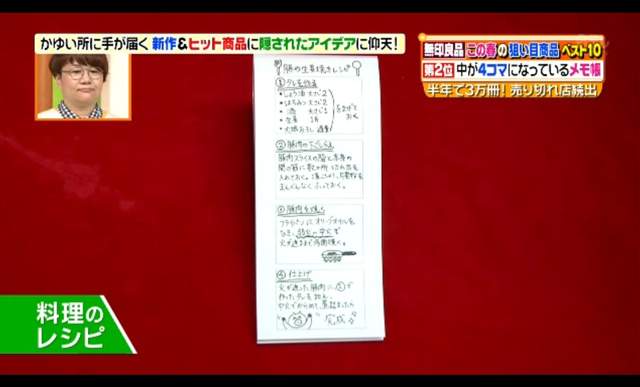 かゆい所に手が届く 新作&ヒット商品に隠されたアイデアに仰天!
無印良品 この春の狙い目商品 ベスト10
第2位 中が4コマになっているメモ帳
半年で3万冊! 売り切れ店続出
豚の生姜焼きレシピ
①タレを作る
・しょう油 大さじ2
・はちみつ 大さじ2
・酒 大さじ
・生姜 1片
・大根おろし 適量
まぜて
おく
②豚肉の下ごしらえ
豚肉スライスの脂と赤身の
間の筋に数か所
入れておく。
まんべんなくふっておく。
③豚肉を焼く
フライパンにオリーブオイルを
火が通るまで両面焼く。
④仕上げ
火が通った豚肉に、①で
作ったタレを加え、
完成
料理の
レシピ